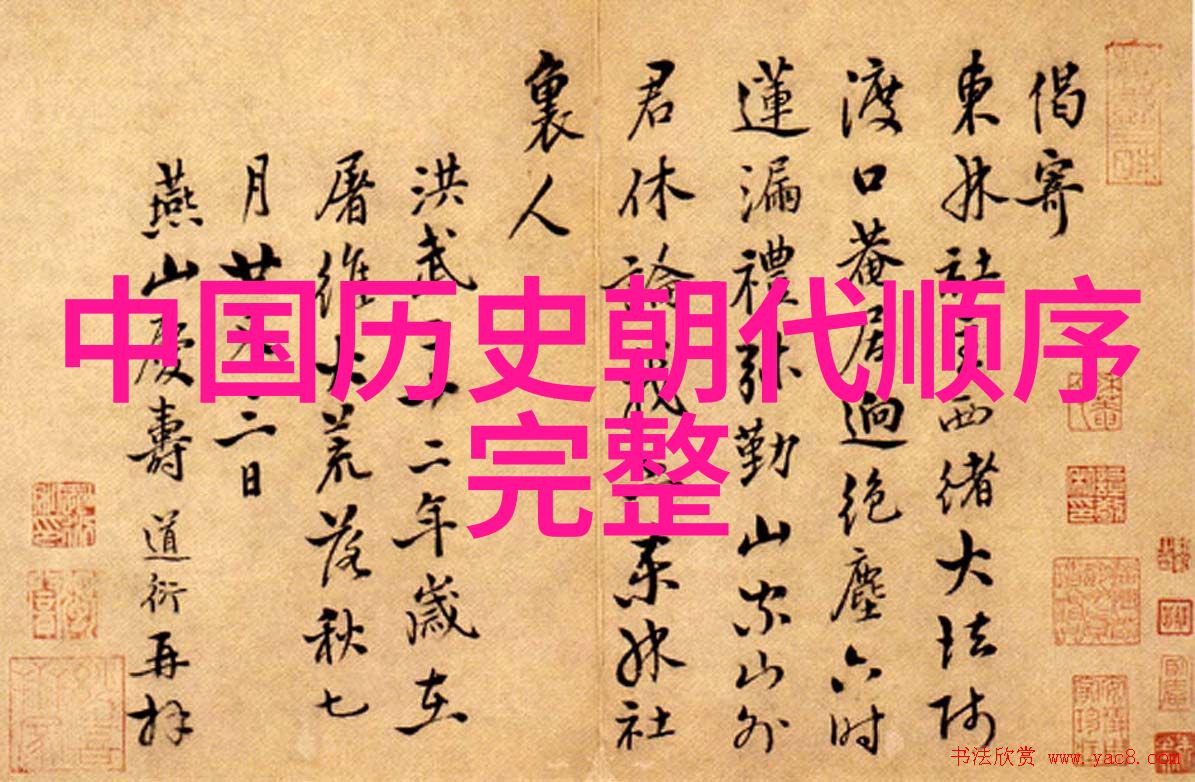 中国历史朝代顺序
完整
偈寄
東林社西緒大法師
渡口菴居逈絶塵六時
蓮漏禮弥勤山家山外
君休論我東林社
裏人
洪武二十二年歲在
屠維大荒落秋七
月廿二日
燕山慶壽道衍再拜
书法欣赏 www.yac8.com